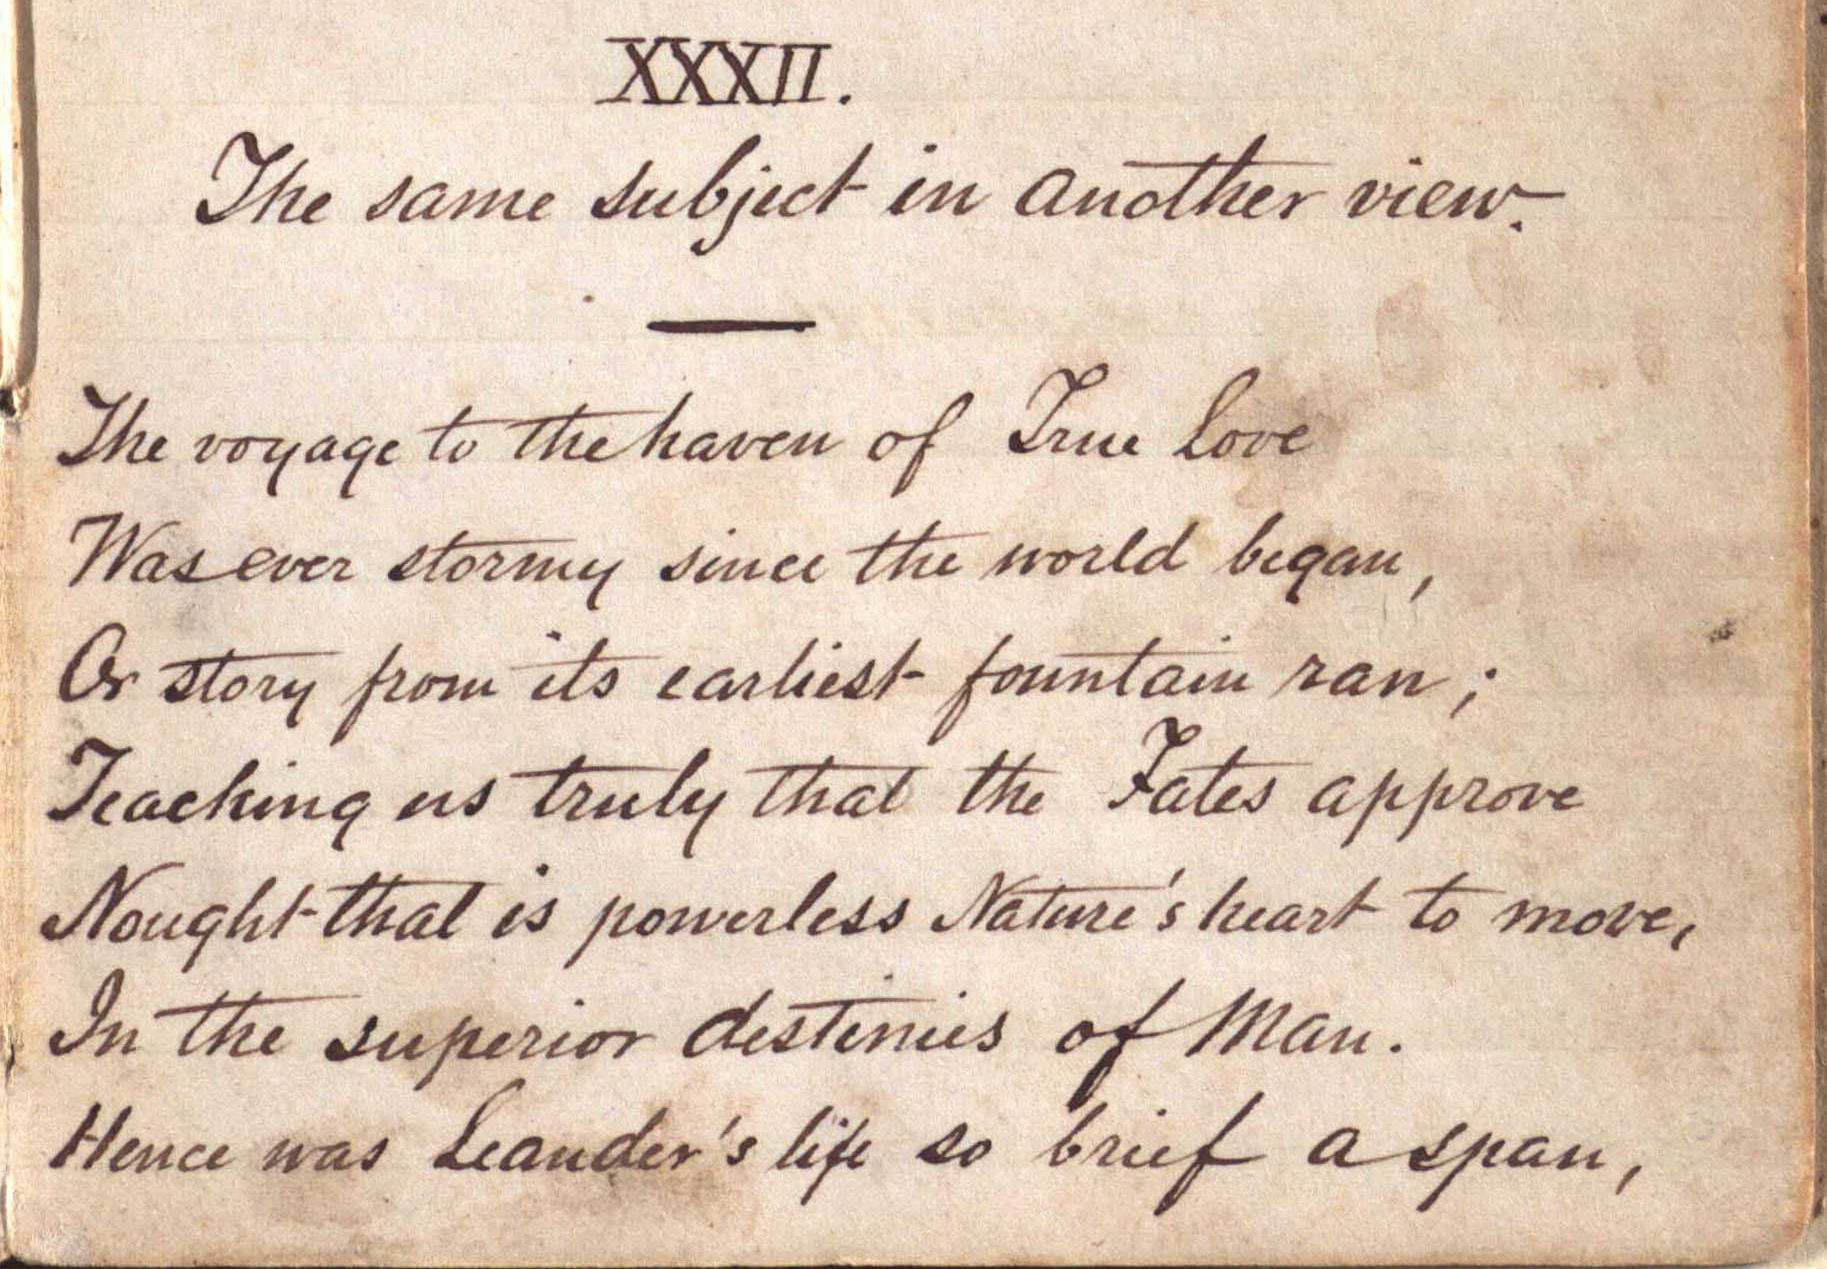 XXXII.
The same subject in another view.
The voyage to the haven of True Love
Was ever stormy since the world began,
Or story from its earliest fountain ran;
Teaching us truly that the Fates approve
Nought that is powerless Nature's heart to move,
In the superior destinies of Man.
Hence was Leander's life so brief a span,